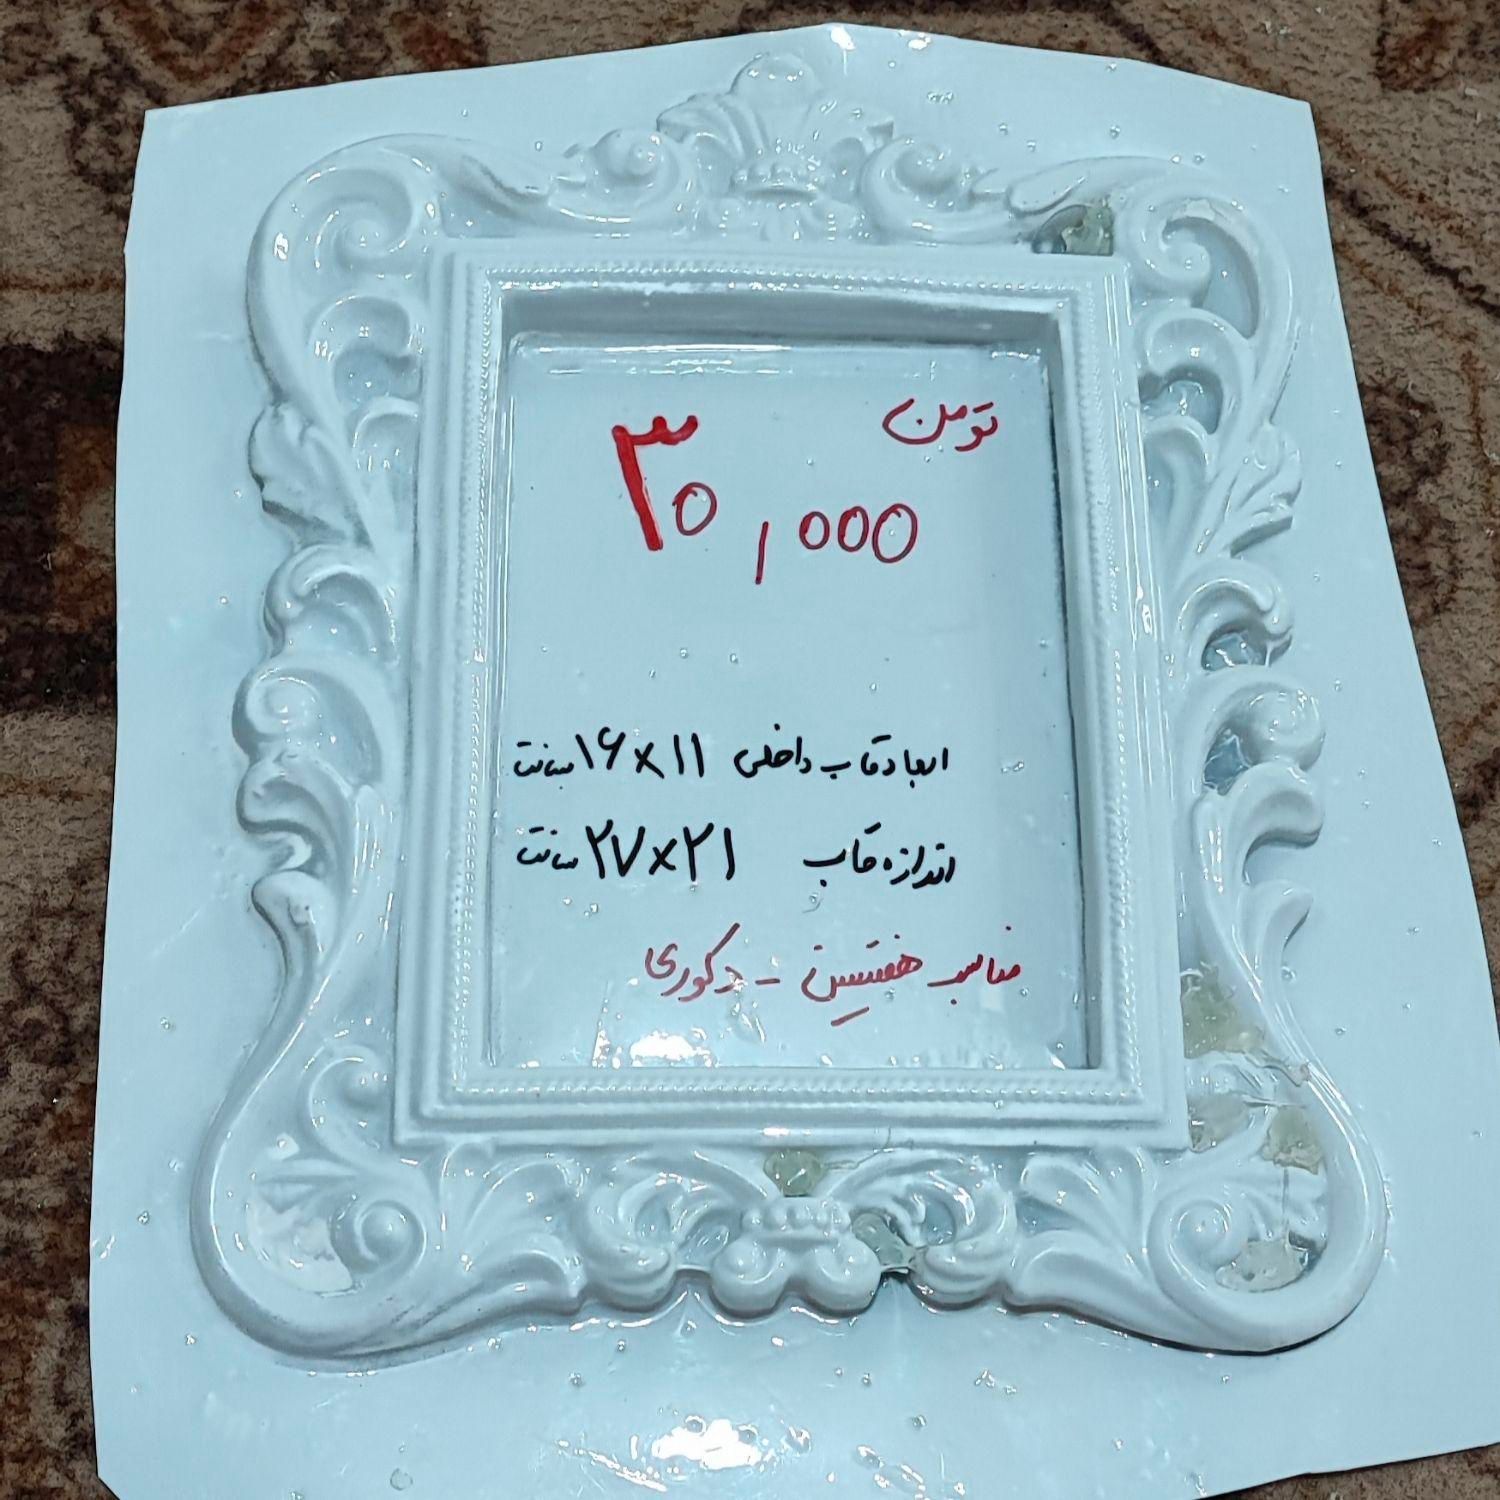 تومن
۳۰,۰۰۰
ابعاد قاب داخلی ۱۱×۱۶ سانت
اندازه قاب ۲۱×۲۷ سانت
مناسب هفتسین - دکوری